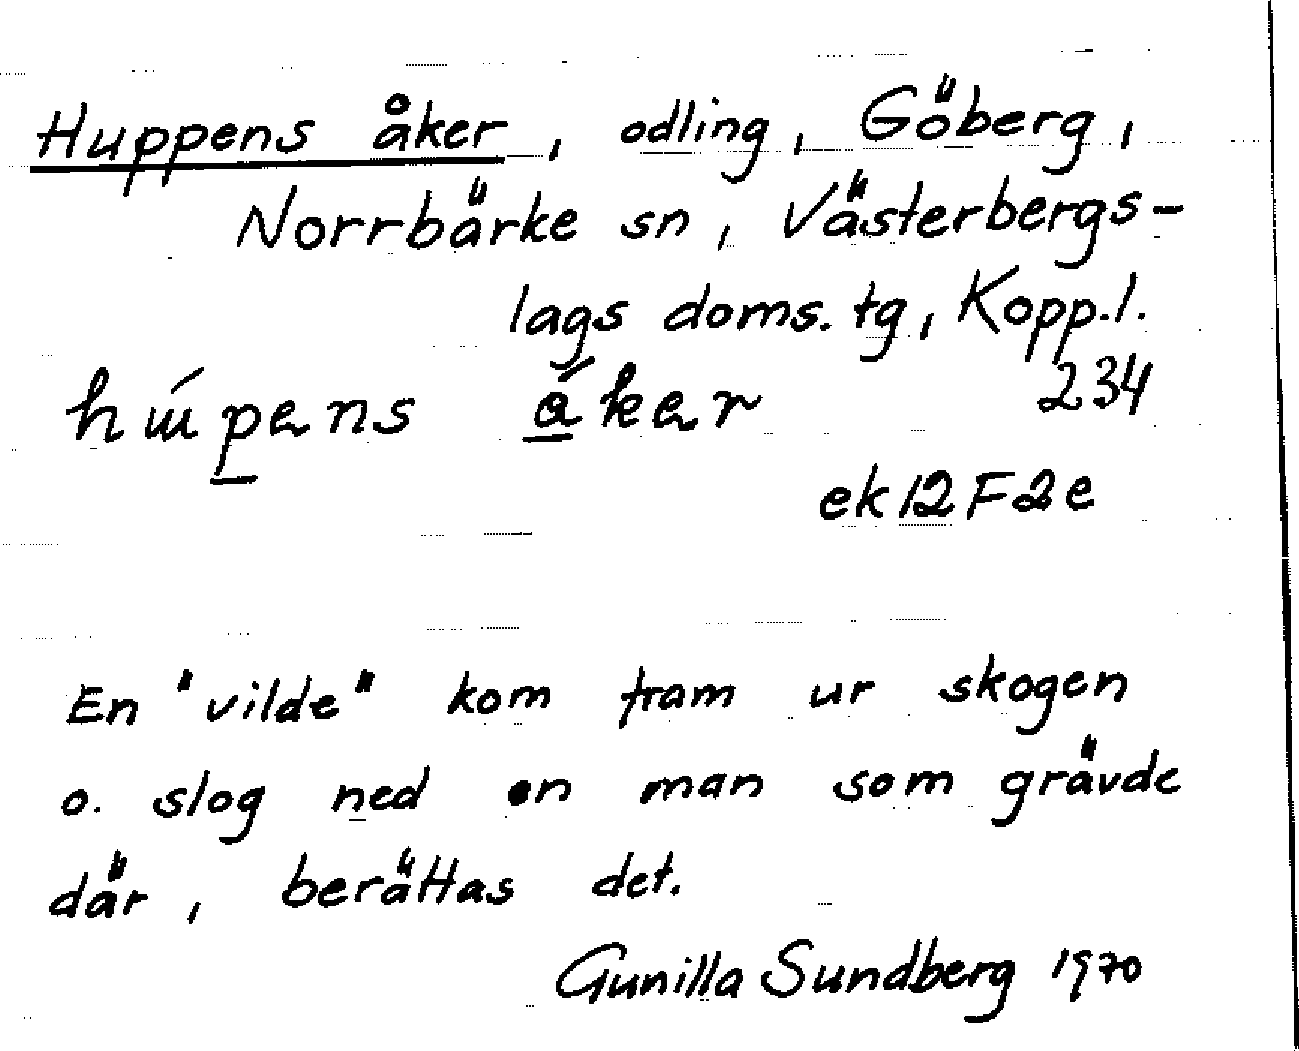 Huppens åker, odling, Göberg,
Norrbärke sn, Västerbergs-
lags doms. tg, Kopp.l.
234
húpens åker
ek 12 F 2 e
En "vilde" kom fram ur skogen
o. slog ned en man som grävde
där, berättas det.
Gunilla Sundberg 1970